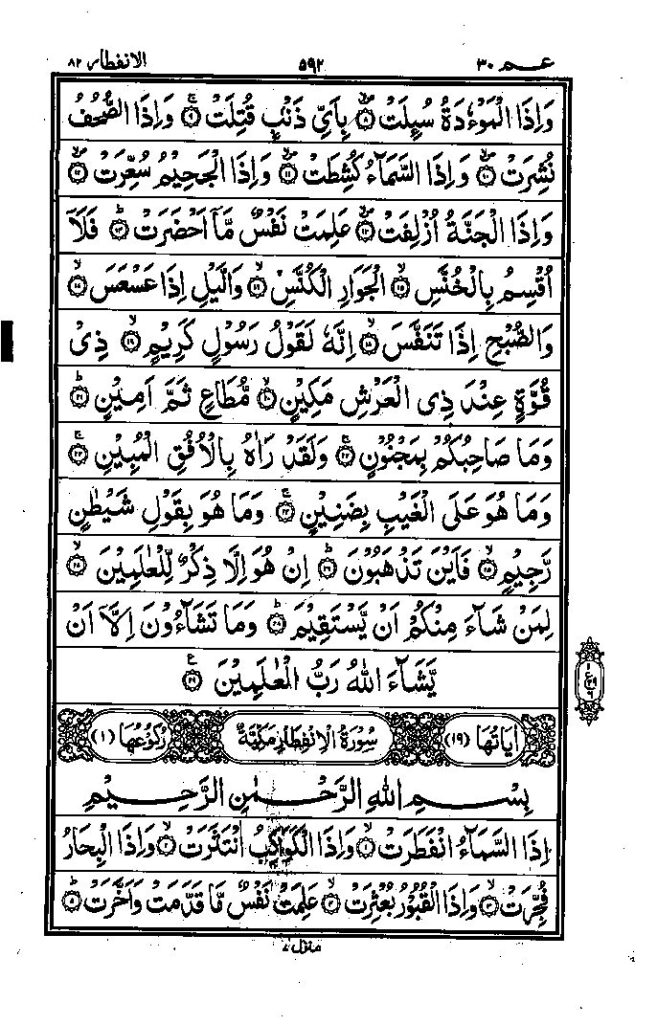 عـم ٣٠ ٥٩٢ الانفطار ٨٢
وَاِذَا الْمَوْءٗدَةُ سُىِٕلَتْ ۝٨ بِاَیِّ ذَنْۢبٍ قُتِلَتْ ۝٩ وَاِذَا الصُّحُفُ
نُشِرَتْ ۝١٠ وَاِذَا السَّمَآءُ كُشِطَتْ ۝١١ وَاِذَا الْجَحِیْمُ سُعِّرَتْ ۝١٢
وَاِذَا الْجَنَّةُ اُزْلِفَتْ ۝١٣ عَلِمَتْ نَفْسٌ مَّاۤ اَحْضَرَتْ ۝١٤ فَلَاۤ
اُقْسِمُ بِالْخُنَّسِ ۝١٥ الْجَوَارِ الْكُنَّسِ ۝١٦ وَالَّیْلِ اِذَا عَسْعَسَ ۝١٧
وَالصُّبْحِ اِذَا تَنَفَّسَ ۝١٨ اِنَّهٗ لَقَوْلُ رَسُوْلٍ كَرِیْمٍ ۝١٩ ذِیْ
قُوَّةٍ عِنْدَ ذِی الْعَرْشِ مَكِیْنٍ ۝٢٠ مُّطَاعٍ ثَمَّ اَمِیْنٍ ۝٢١
وَمَا صَاحِبُكُمْ بِمَجْنُوْنٍ ۝٢٢ وَلَقَدْ رَاٰهُ بِالْاُفُقِ الْمُبِیْنِ ۝٢٣
وَمَا هُوَ عَلَی الْغَیْبِ بِضَنِیْنٍ ۝٢٤ وَمَا هُوَ بِقَوْلِ شَیْطٰنٍ
رَّجِیْمٍ ۝٢٥ فَاَیْنَ تَذْهَبُوْنَ ۝٢٦ اِنْ هُوَ اِلَّا ذِكْرٌ لِّلْعٰلَمِیْنَ ۝٢٧
لِمَنْ شَآءَ مِنْكُمْ اَنْ یَّسْتَقِیْمَ ۝٢٨ وَمَا تَشَآءُوْنَ اِلَّاۤ اَنْ
یَّشَآءَ اللّٰهُ رَبُّ الْعٰلَمِیْنَ ۝٢٩
اٰیَاتُهَا (١٩) سُوْرَةُ الْاِنْفِطَارِ مَكِّیَّةٌ رُكُوْعُهَا (١)
بِسْمِ اللّٰهِ الرَّحْمٰنِ الرَّحِیْمِ
اِذَا السَّمَآءُ انْفَطَرَتْ ۝١ وَاِذَا الْكَوَاكِبُ انْتَثَرَتْ ۝٢ وَاِذَا الْبِحَارُ
فُجِّرَتْ ۝٣ وَاِذَا الْقُبُوْرُ بُعْثِرَتْ ۝٤ عَلِمَتْ نَفْسٌ مَّا قَدَّمَتْ وَاَخَّرَتْ ۝٥
منزل ٧